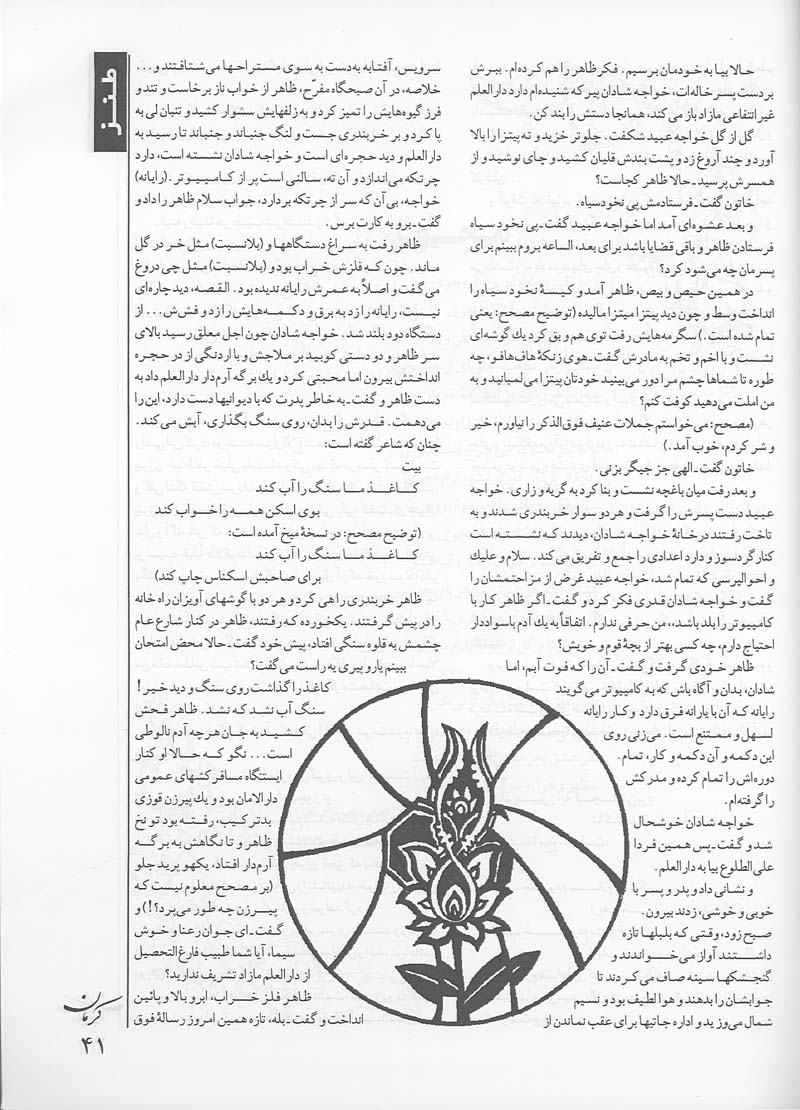 طنز
حالا بیا به خودمان برسیم. فکر ظاهر را هم کرده‌ام. ببرش
بر دست پسر خاله‌ات، خواجه شادان پیر که شنیده‌ام دارد دارالعلم
غیر انتفاعی مازاد باز می کند، همانجا دستش را بند کن.
گل از گل خواجه عبید شکفت. جلوتر خزید و ته پیتزا را بالا
آورد و چند آروغ زد و پشت بندش قلیان کشید و چای نوشید و از
همسرش پرسید ـ حالا ظاهر کجاست؟
خاتون گفت ـ فرستادمش پی نخود سیاه.
و بعد عشوه‌ای آمد اما خواجه عبید گفت ـ پی نخود سیاه
فرستادن ظاهر و باقی قضایا باشد برای بعد، الساعه بروم ببینم برای
پسرمان چه می شود کرد؟
در همین حیص و بیص، ظاهر آمد و کیسهٔ نخود سیاه را
انداخت وسط و چون دید پیتزا میتزا مالیده (توضیح مصحح: یعنی
تمام شده است.) سگرمه‌هایش رفت توی هم و بق کرد یك گوشه‌ای
نشست و با اخم و تخم به مادرش گفت ـ هوی زنکهٔ هاف‌هافو، چه
طوره تا شماها چشم مرا دور می بینید خودتان پیتزا می لمبانید و به
من املت می دهید کوفت کنم؟
(مصحح: می خواستم جملات عنیف فوق الذکر را نیاورم، خیر
و شر کردم، خوب آمد.)
خاتون گفت ـ الهی جز جیگر بزنی.
و بعد رفت میان باغچه نشست و بنا کرد به گریه و زاری. خواجه
عبید دست پسرش را گرفت و هر دو سوار خربندری شدند و به
تاخت رفتند در خانهٔ خواجه شادان، دیدند که نشسته است
کنار گردسوز و دارد اعدادی را جمع و تفریق می کند. سلام و علیك
و احوالپرسی که تمام شد، خواجه عبید غرض از مزاحمتشان را
گفت و خواجه شادان قدری فکر کرد و گفت ـ اگر ظاهر کار با
کامپیوتر را بلد باشد،.. من حرفی ندارم. اتفاقاً به یك آدم باسواددار
احتیاج دارم، چه کسی بهتر از بچهٔ قوم و خویش؟
ظاهر خودی گرفت و گفت ـ آن را که فوت آبم، اما
شادان، بدان و آگاه باش که به کامپیوتر می گویند
رایانه که آن با یارانه فرق دارد و کار رایانه
لسهل و ممتنع است. می زنی روی
این دکمه و آن دکمه و کار، تمام.
دوره‌اش را تمام کرده و مدرکش
را گرفته‌ام.
خواجه شادان خوشحال
شد و گفت ـ پس همین فردا
علی الطلوع بیا به دارالعلم.
و نشانی داد و پدر و پسر با
خوبی و خوشی، زدند بیرون.
صبح زود، وقتی که بلبلها تازه
داشتند آواز می خواندند و
گنجشکها سینه صاف می کردند تا
جوابشان را بدهند و هوا لطیف بود و نسیم
شمال می وزید و اداره جاتیها برای عقب نماندن از
سرویس، آفتابه به‌دست به سوی مستراحها می شتافتند و...
خلاصه، در آن صبحگاه مفرّح، ظاهر از خواب ناز برخاست و تند و
فرز گیوه‌هایش را تمیز کرد و به زلفهایش سشوار کشید و تنبان لی به
پا کرد و بر خربندری جست و لنگ جنباند و جنباند تا رسید به
دارالعلم و دید حجره‌ای است و خواجه شادان نشسته است، دارد
چرتکه می اندازد و آن ته، سالنی است پر از کامپیوتر. (رایانه)
خواجه، بی آن که سر از چرتکه بردارد، جواب سلام ظاهر را داد و
گفت ـ برو به کارت برس.
ظاهر رفت به سراغ دستگاهها و (بلانسبت) مثل خر در گل
ماند. چون که فلزش خراب بود و (بلانسبت) مثل چی دروغ
می گفت و اصلاً به عمرش رایانه ندیده بود. القصه، دید چاره‌ای
نیست، رایانه را زد به برق و دکمه‌هایش را زد و فش‌ش... از
دستگاه دود بلند شد. خواجه شادان چون اجل معلق رسید بالای
سر ظاهر و دو دستی کوبید بر ملاجش و با اردنگی از در حجره
انداختش بیرون اما محبتی کرد و یك برگه آرم‌دار دارالعلم داد به
دست ظاهر و گفت ـ به خاطر پدرت که با دیوانیها دست دارد، این را
می دهمت. قدرش را بدان، روی سنگ بگذاری، آبش می کند.
چنان که شاعر گفته است:
بیت
کاغذ ما سنگ را آب کند
بوی اسکن همه را خواب کند
(توضیح مصحح: در نسخهٔ میخ آمده است:
کاغذ ما سنگ را آب کند
برای صاحبش اسکناس چاپ کند)
ظاهر خربندری را هی کرد و هر دو با گوشهای آویزان راه خانه
را در پیش گرفتند. یکخورده که رفتند، ظاهر در کنار شارع عام
چشمش به قلوه سنگی افتاد، پیش خود گفت ـ حالا محض امتحان
ببینم یارو پیری یه راست می گفت؟
کاغذ را گذاشت روی سنگ و دید خیر!
سنگ آب نشد که نشد. ظاهر فحش
کشید به جان هر چه آدم نالوطی
است... نگو که حالا او کنار
ایستگاه مسافرکشهای عمومی
دارالامان بود و یك پیرزن قوزی
بدترکیب، رفته بود تو نخ
ظاهر و تا نگاهش به برگه
آرم‌دار افتاد، یکهو پرید جلو
(بر مصحح معلوم نیست که
پیرزن چه طور می پرد؟!) و
گفت ـ ای جوان رعنا و خوش
سیما، آیا شما طبیب فارغ التحصیل
از دارالعلم مازاد تشریف ندارید؟
ظاهر فلز خراب، ابرو بالا و پائین
انداخت و گفت ـ بله، تازه همین امروز رسالهٔ فوق
کرمان
۴۱